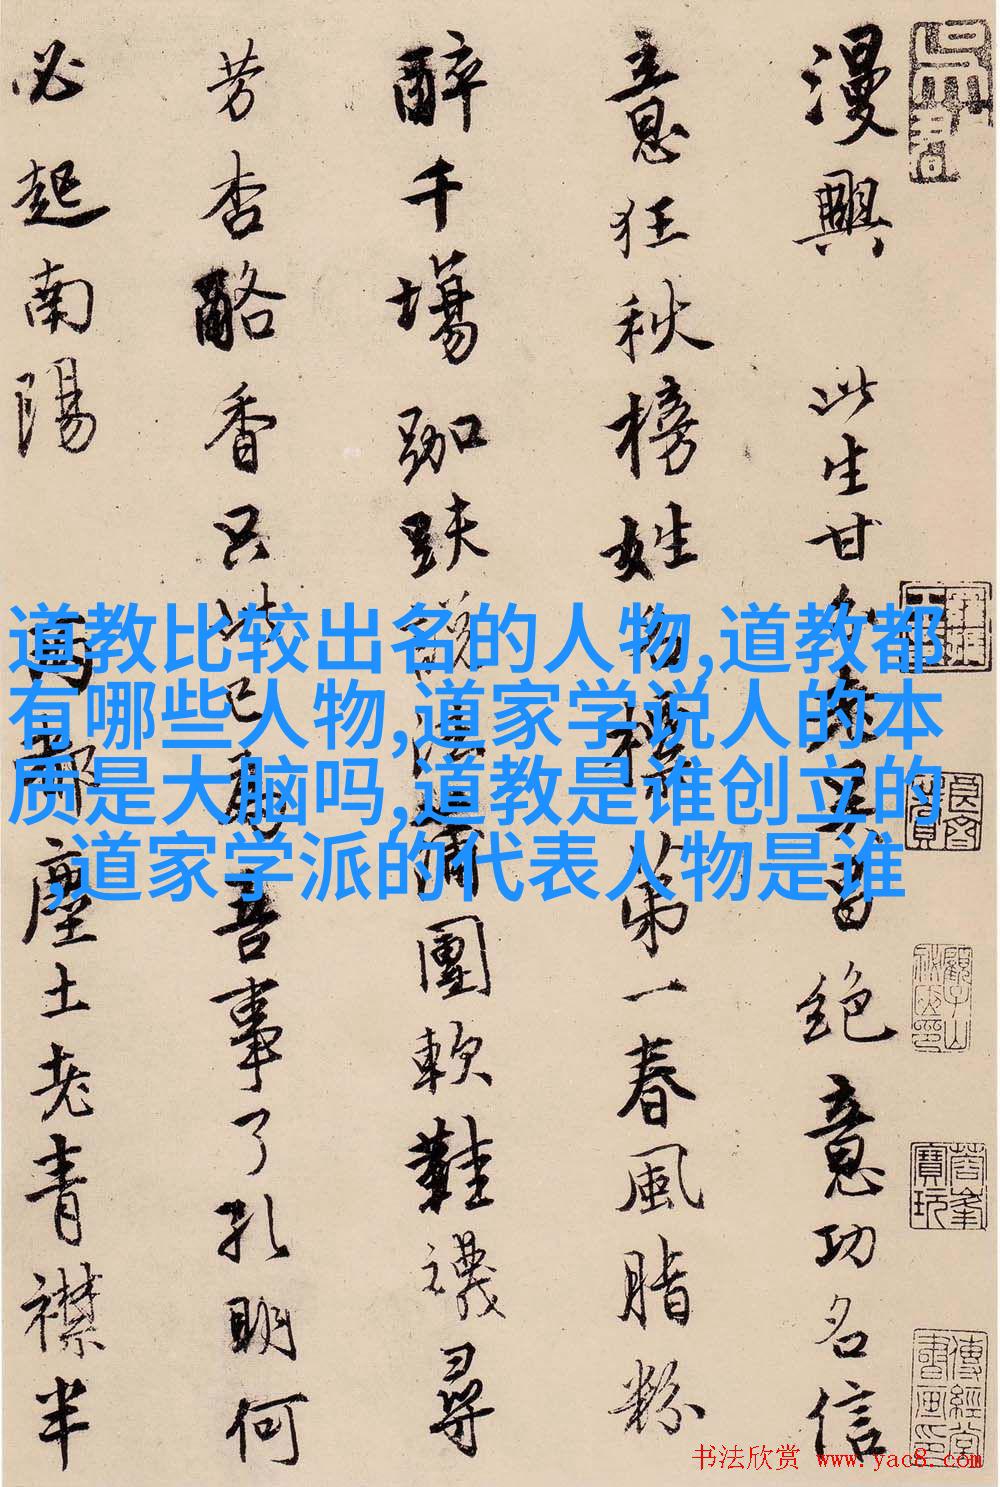 漫興 此生甘分老吳昌絕意功名信
意狂秋榜姓名標第一春風脂粉
醉千場跏趺說法蒲團軟鞋襪尋
芳杏酪香只此已吾事了孔明何
必起南陽 塵土老青襟半
道教比较出名的人物,道教都
有哪些人物,道家学说人的本
质是大脑吗,道教是谁创立的
,道家学派的代表人物是谁
书法欣赏 www.yac8.com